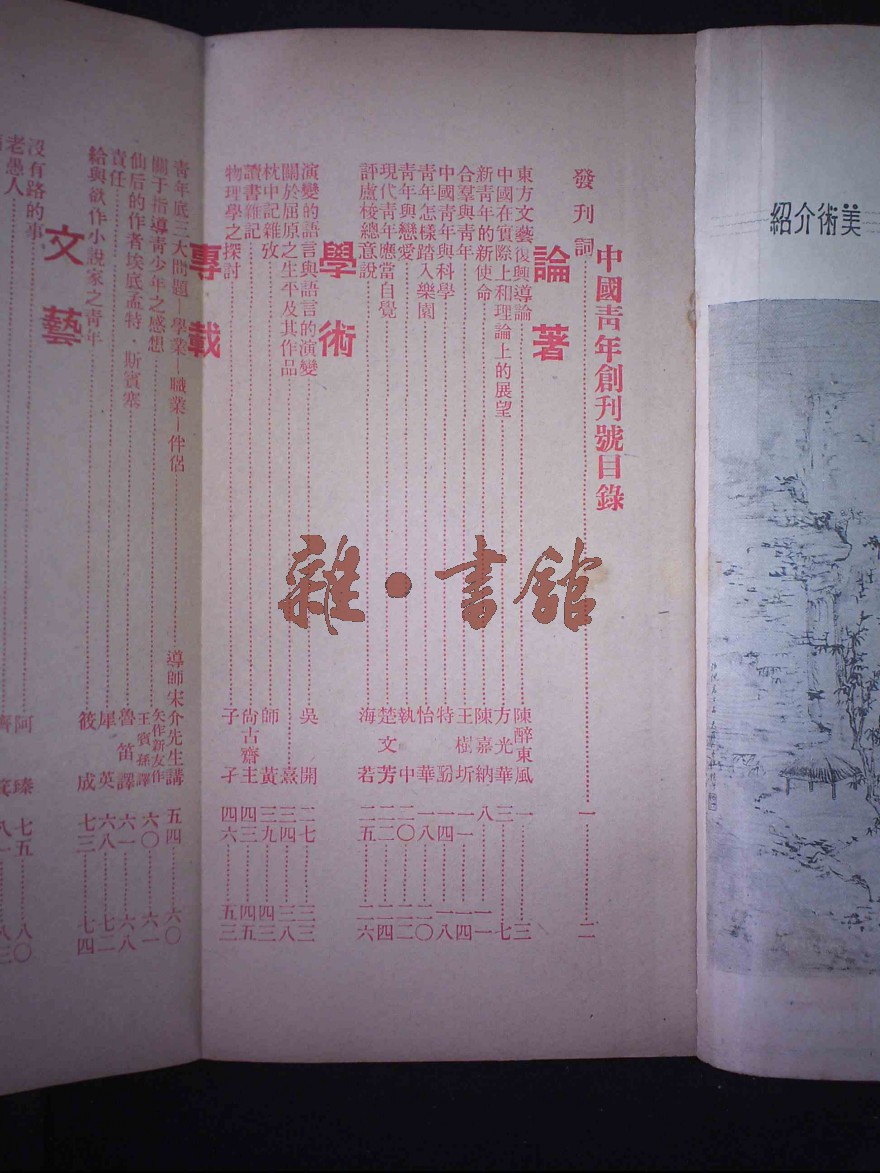 美術介紹
中國青年創刊號目錄
發刊詞 一 二
論著
東方文藝復興導論 陳醉東風 一 三
中國在實際上和理論上的展望 方光華 三 七
新青年的新使命 陳嘉納 八 一一
合羣與青年 王樹圻 一一 一四
中國青年與科學 特 一四 一八
青年怎樣踏入樂園 怡華 一八 二〇
青年與戀愛 執中 二〇 二二
現代青年應當自覺 楚文芳 二二 二四
評盧梭總意說 海若 二五 二六
學術
演變的語言與語言的演變 吳開 二七 三三
關於屈原之生平及其作品 熹 三四 三八
枕中記雜攷 師黃 三九 四三
讀書雜記 尙古齋主 四三 四五
物理學之探討 子子 四六 五三
專載
青年底三大問題—學業—職業—伴侶 導師宋介先生講 五四 六〇
關于指導青少年之感想 矢作新友作 王賓孫譯 六〇 六一
仙后的作者埃底孟特·斯賓塞 魯笛譯 六一 六八
責任 犀英 六八 七二
給與欲作小說家之青年 筱成 七三 七四
文藝
沒有路的事 阿臻 七五 八〇
老愚人 八一 八三
雜·書館